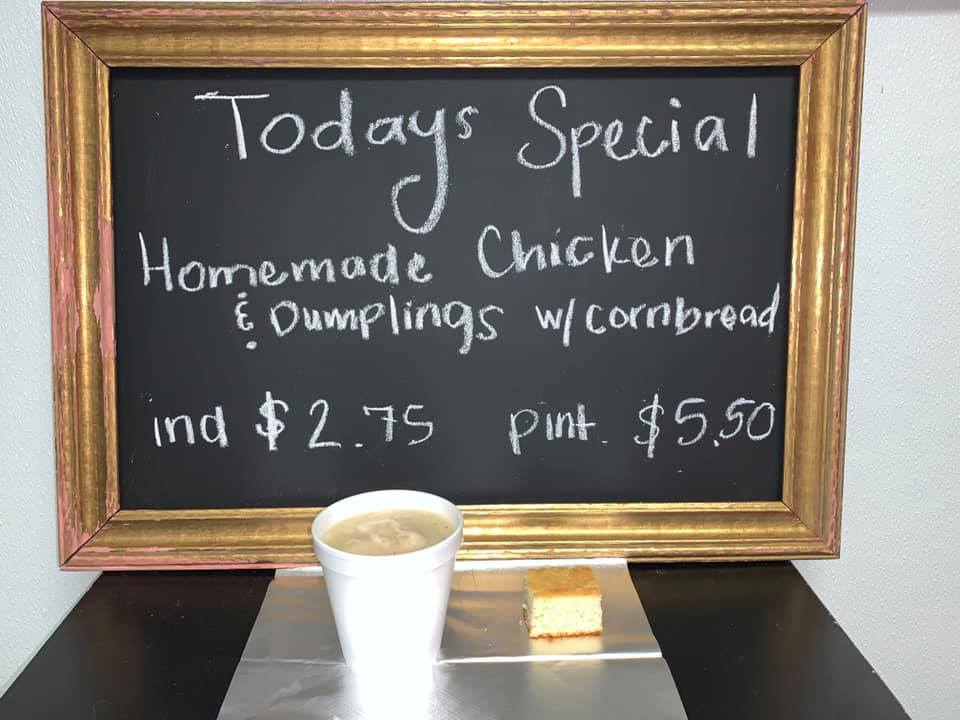 Todays Special
Homemade Chicken
& Dumplings w/cornbread
ind $2.75 pint. $5.50